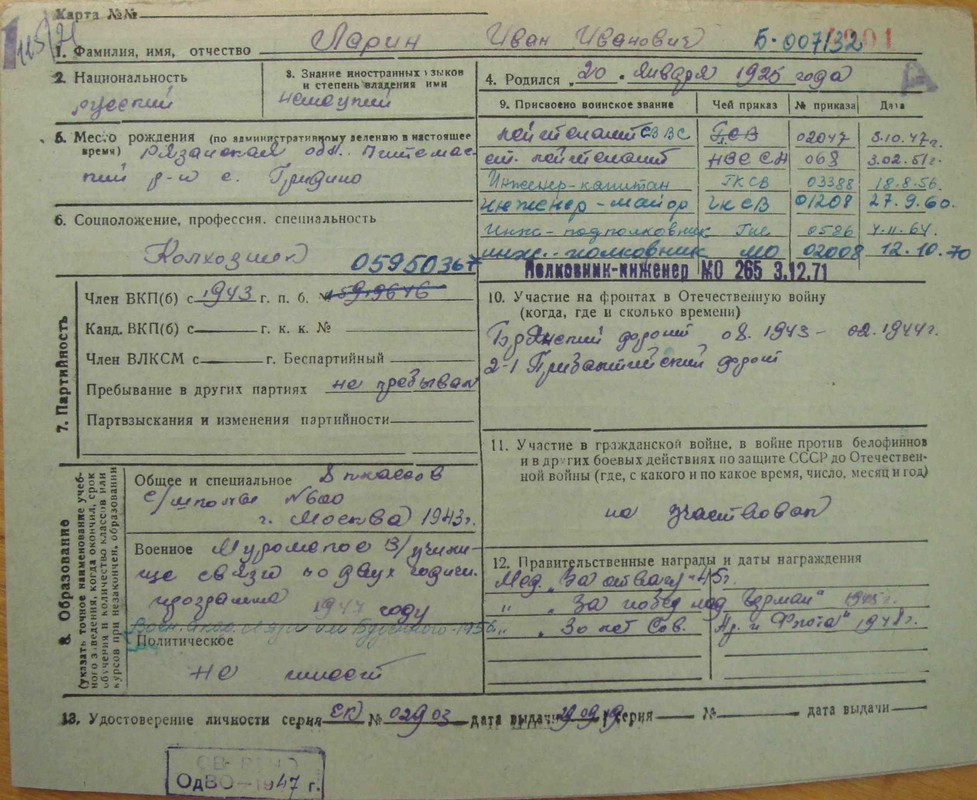 Карта №№
1. Фамилия, имя, отчество Ларин Иван Иванович Б-007132
2. Национальность
русский
3. Знание иностранных языков
и степень владения ими
немецкий
4. Родился „20" Января 1925 года
А
5. Место рождения (по административному делению в настоящее
время) Рязанская обл. Пителинс-
кий р-н с. Гридино
9. Присвоено воинское звание Чей приказ № приказа Дата
лейтенант СВВС 02047 3.10.47г.
ст. лейтенант 068 3.02.51г.
Инженер-капитан ГКСВ 03388 18.8.56.
инженер-майор ГКСВ 01208 27.9.60.
Инж-подполковник 0586 4.11.64.
инж.-полковник МО 02008 12.10.70
Полковник-инженер МО 265 3.12.71
6. Соцположение, профессия. специальность
Колхозник
05950367
7. Партийность
Член ВКП(б) с 1943 г. п. б. №
Канд. ВКП(б) с г. к. к. №
Член ВЛКСМ с г. Беспартийный
Пребывание в других партиях не пребывал
Партвзыскания и изменения партийности
10. Участие на фронтах в Отечественную войну
(когда, где и сколько времени)
Брянский фронт 08.1943 - 02.1944г.
2-й Прибалтийский фронт
11. Участие в гражданской войне, в войне против белофиннов
и в других боевых действиях по защите СССР до Отечествен-
ной войны (где, с какого и по какое время, число, месяц и год)
не участвовал
8. Образование
(указать точное наименование учеб-
ного заведения, когда окончил, срок
обучения и количество классов или
курсов при незакончен. образовании
Общее и специальное 8 классов
с/школы №600
г. Москва 1943г.
Военное Муромское В/учили-
ще связи по двух годичн.
программе 1947 году
Политическое
не имеет
12. Правительственные награды и даты награждения
Мед. „За отвагу" 45г.
„ „За побед над Герман" 1945г.
„ „30 лет Сов. Ар. и Флота" 1948г.
13. Удостоверение личности серия ЕК № 02903 дата выдачи 29.09.49 серия № дата выдачи
СВЕРЕНО
ОдВО—1947 г.